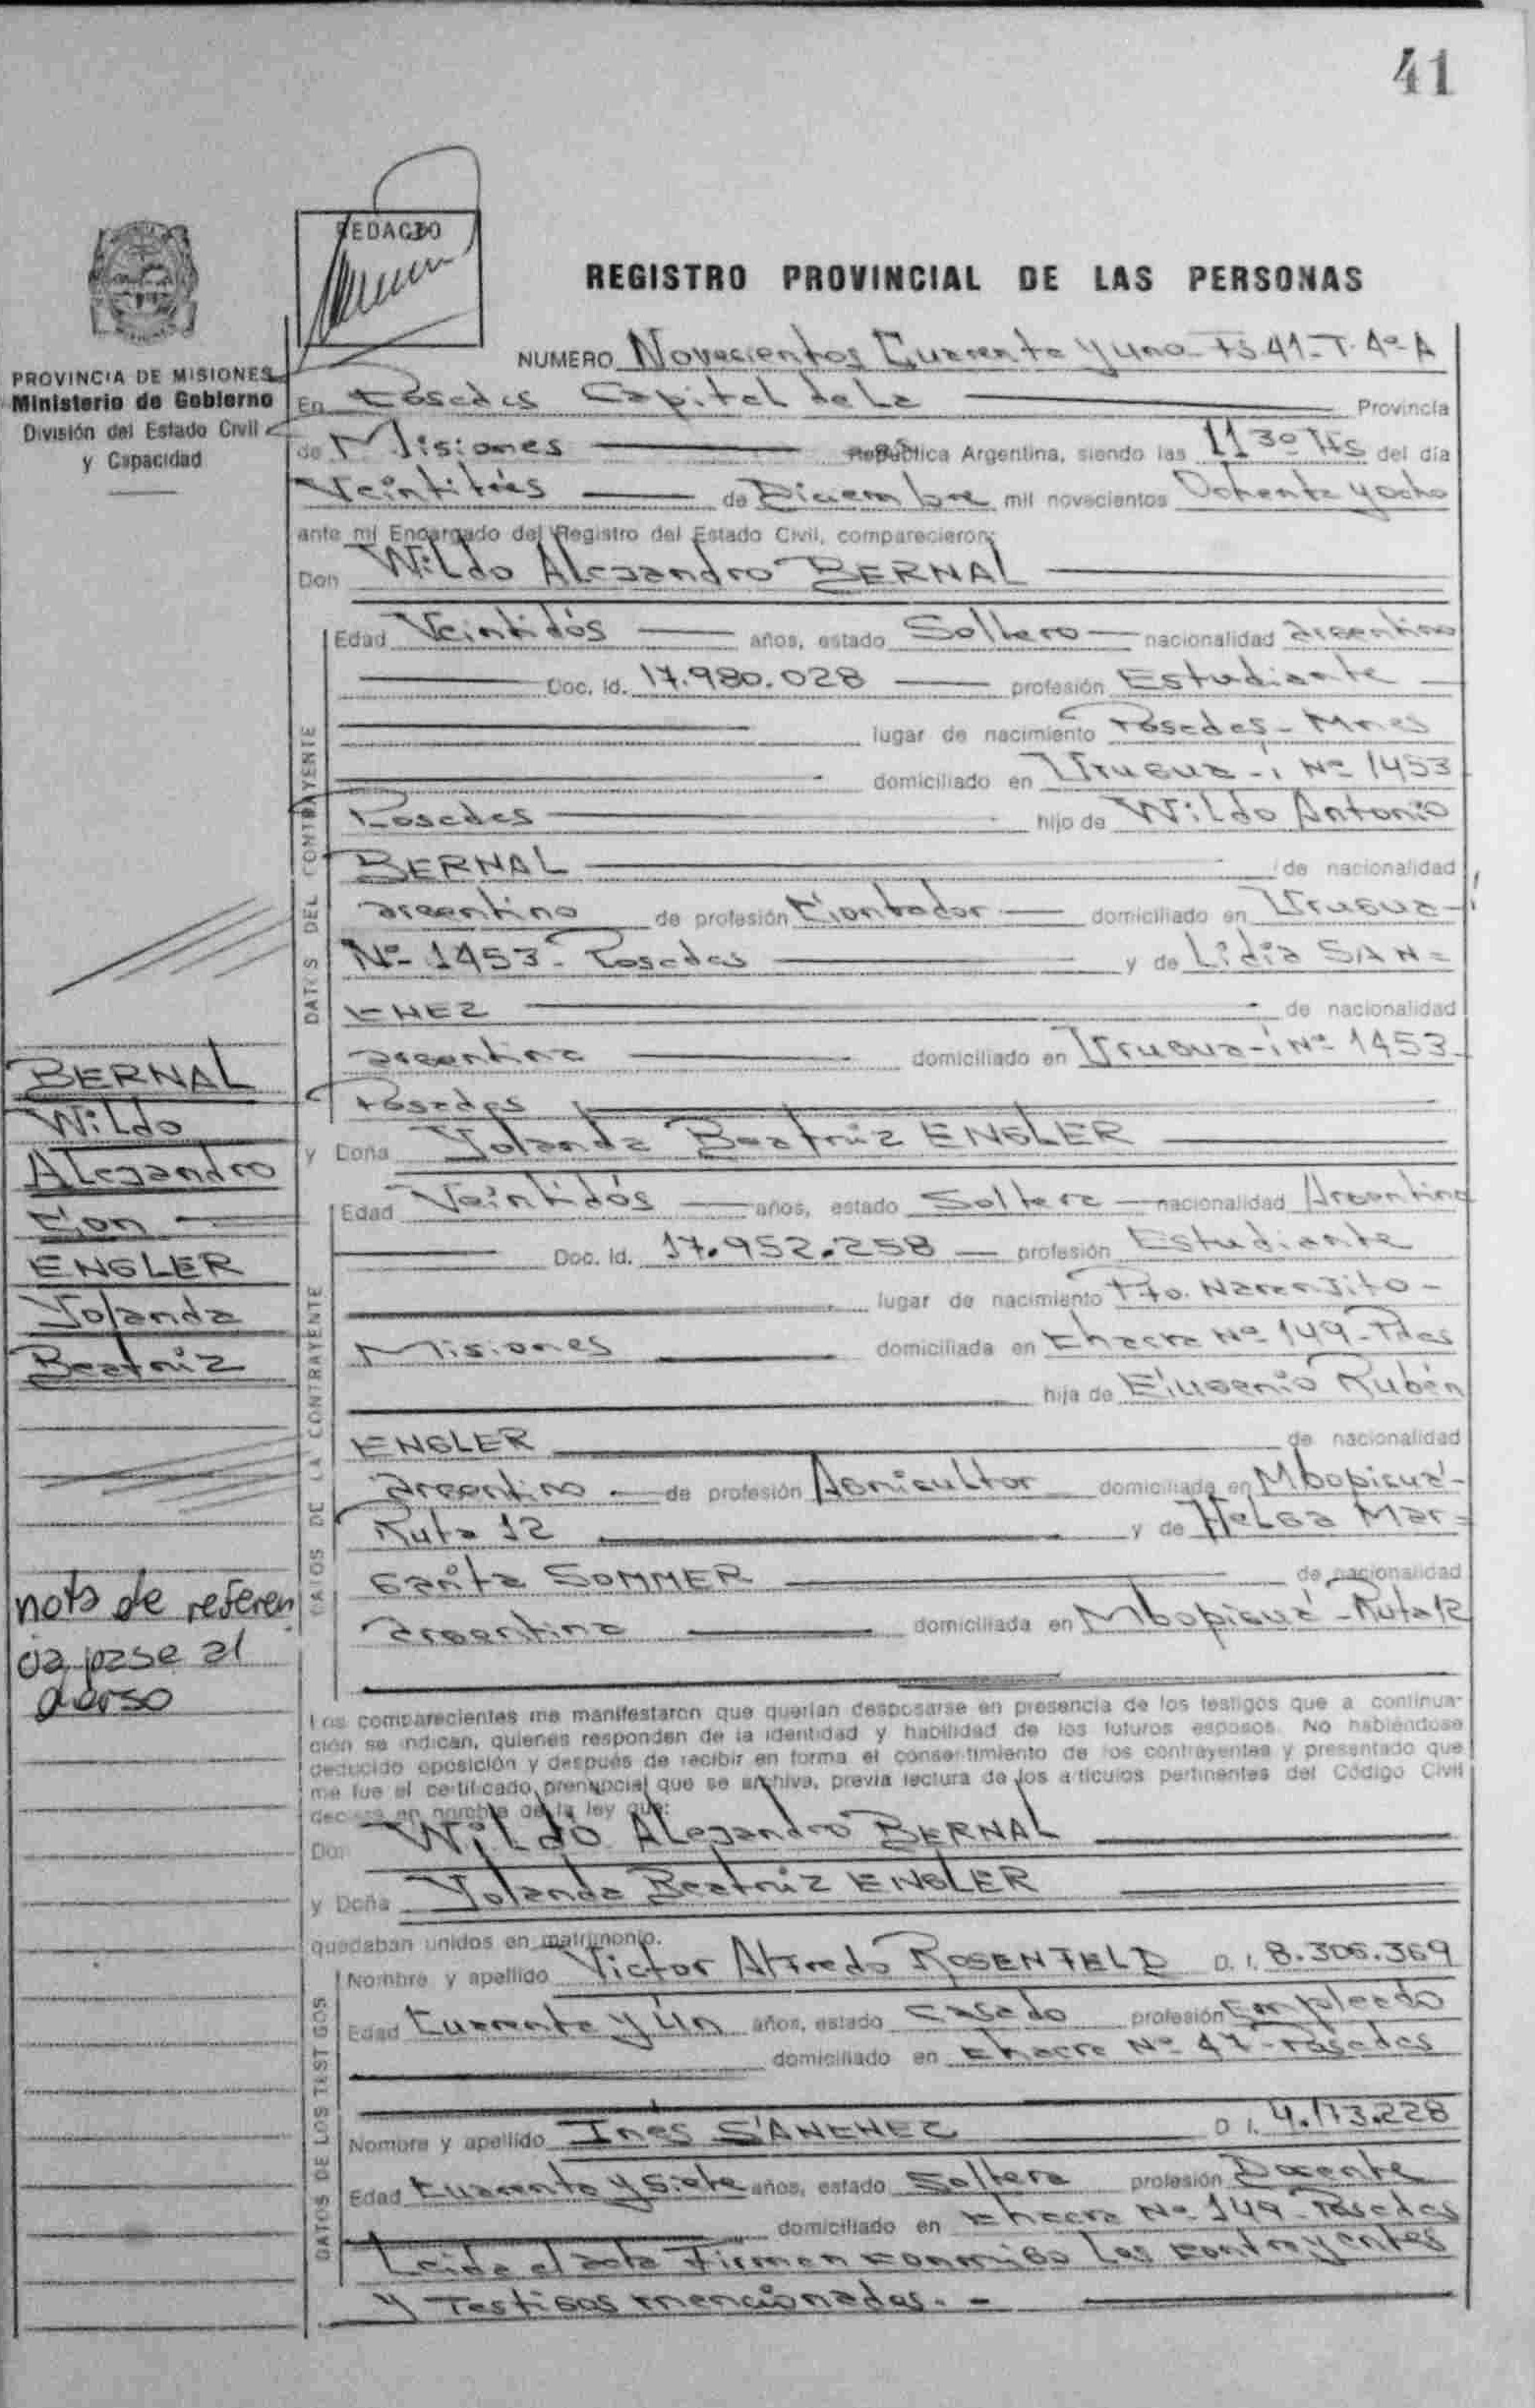 41
REDACTO
REGISTRO PROVINCIAL DE LAS PERSONAS
PROVINCIA DE MISIONES
Ministerio de Gobierno
División del Estado Civil
y Capacidad
NUMERO Novecientos Cuarenta y uno - Fs 41 - T. 4º A
En Posadas Capital de La Provincia
de Misiones República Argentina, siendo las 11 30 Hs del día
Veintitrés de Diciembre mil novecientos Ochenta y ocho
ante mí Encargado del Registro del Estado Civil, comparecieron:
Don Wildo Alejandro BERNAL
DATOS DEL CONTRAYENTE
Edad Veintidós años, estado Soltero nacionalidad argentino
Doc. Id. 17.980.028 profesión Estudiante
lugar de nacimiento Posadas - Mnes
domiciliado en Urugua-í Nº 1453
Posadas hijo de Wildo Antonio
BERNAL de nacionalidad
argentino de profesión Contador domiciliado en Urugua-í
Nº 1453 - Posadas y de Lidia SAN=
CHEZ de nacionalidad
argentina domiciliado en Urugua-í Nº 1453
Posadas
y Doña Yolanda Beatriz ENGLER
DATOS DE LA CONTRAYENTE
Edad Veintidós años, estado Soltera nacionalidad Argentina
Doc. Id. 17.952.258 profesión Estudiante
lugar de nacimiento Pto. Naranjito -
Misiones domiciliada en Chacra Nº 149 - Pdas
hija de Eugenio Rubén
ENGLER de nacionalidad
argentino de profesión Agricultor domiciliada en Mbopicuá -
Ruta 12 y de Helga Mar=
garita SOMMER de nacionalidad
argentina domiciliada en Mbopicuá - Ruta 12
BERNAL
Wildo
Alejandro
Con
ENGLER
Yolanda
Beatriz
nota de referen
cia pase al
dorso
Los comparecientes me manifestaron que querían desposarse en presencia de los testigos que a continua-
ción se indican, quienes responden de la identidad y habilidad de los futuros esposos. No habiéndose
deducido oposición y después de recibir en forma el consentimiento de los contrayentes y presentado que
me fue el certificado prenupcial que se archiva, previa lectura de los artículos pertinentes del Código Civil
declaro en nombre de la ley que:
Don Wildo Alejandro BERNAL
y Doña Yolanda Beatriz ENGLER
quedaban unidos en matrimonio.
DATOS DE LOS TESTIGOS
Nombre y apellido Victor Alfredo ROSENFELD D. I. 8.306.369
Edad Cuarenta y Un años, estado Casado profesión Empleado
domiciliado en Chacra Nº 47 - Posadas
Nombre y apellido Inés SÁNCHEZ D. I. 4.173.228
Edad Cuarenta y siete años, estado Soltera profesión Docente
domiciliado en Chacra Nº 149 - Posadas
Leída el acta Firman conmigo Los contrayentes
y Testigos mencionados. -